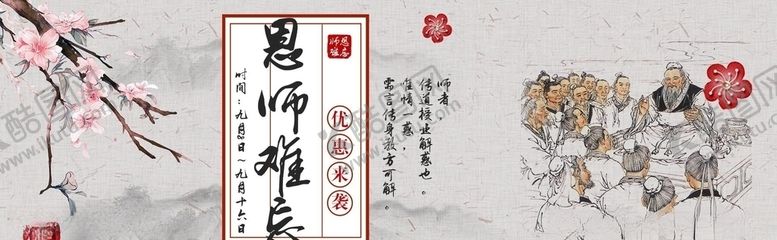 恩师难忘
时间：九月四日～九月十六日
优惠来袭
师者
传道授业解惑也。
唯情一惑，
需言传身教方可解。